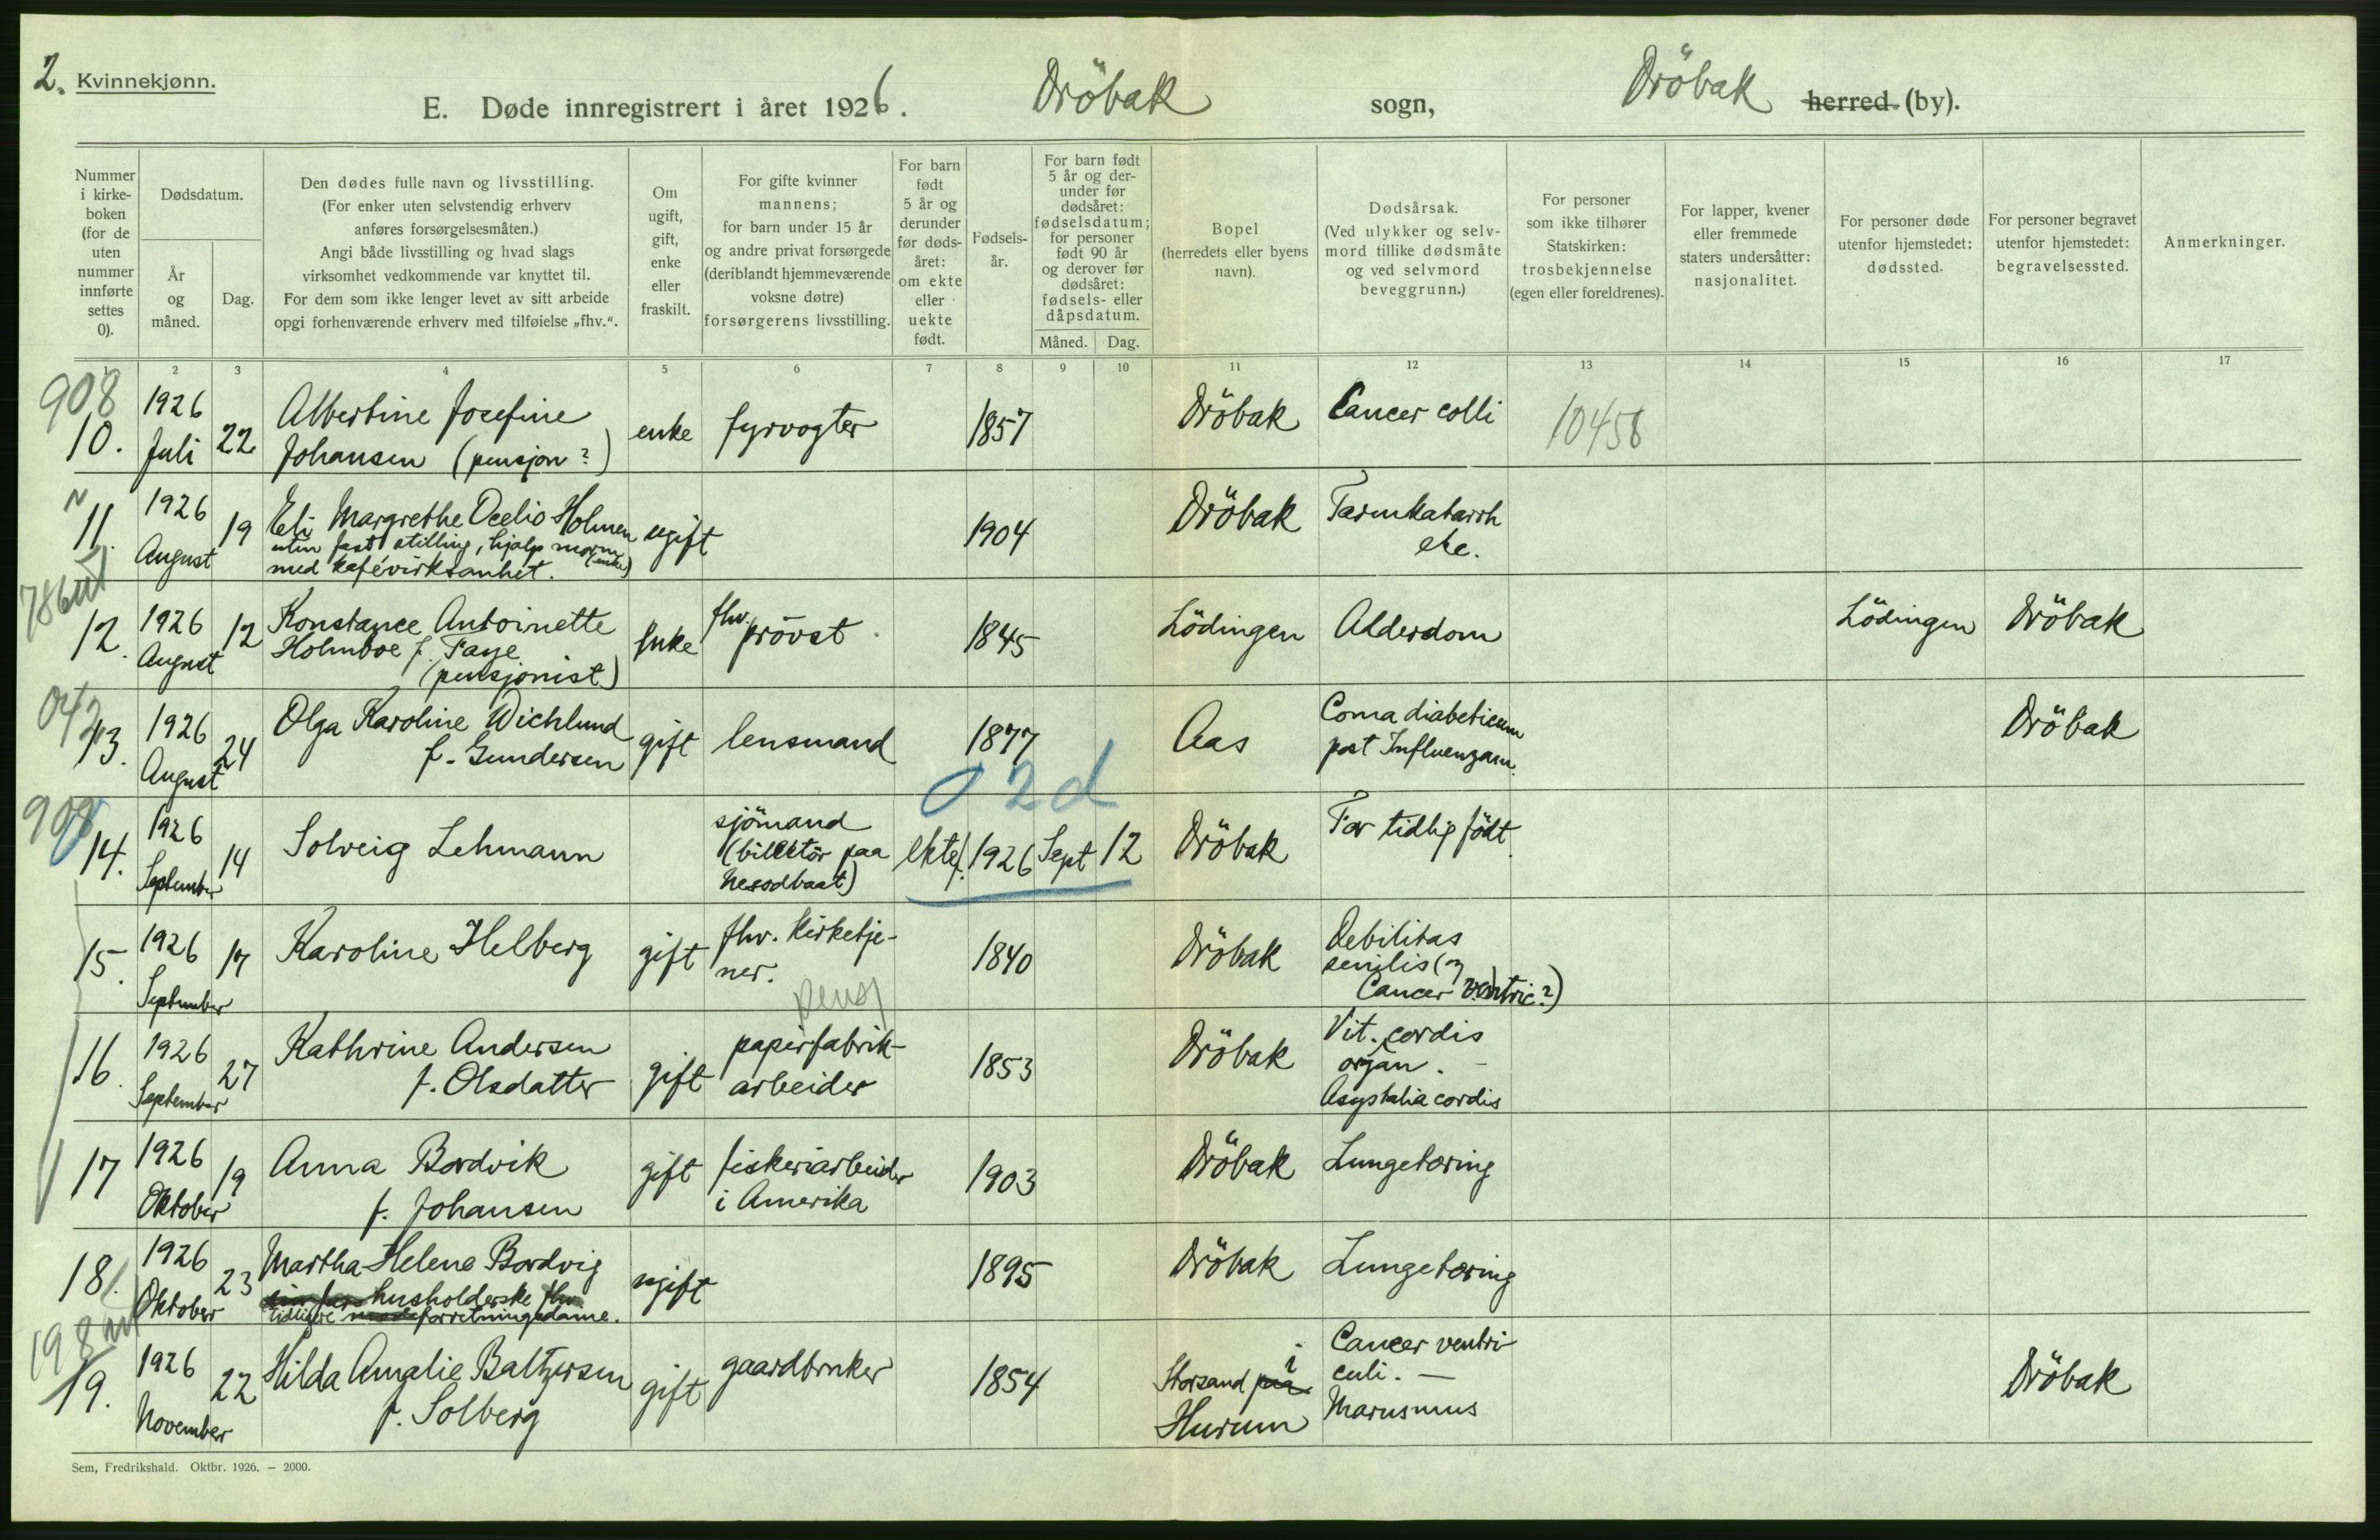 2. Kvinnekjønn.
E. Døde innregistrert i året 1926. Dröbak sogn, Dröbak herred (by).
Nummer i kirke- boken (for de uten nummer innførte settes 0).
Dødsdatum.
År og måned.
Dag.
Den dødes fulle navn og livsstilling.
(For enker uten selvstendig erhverv
anføres forsørgelsesmåten.)
Angi både livsstilling og hvad slags
virksomhet vedkommende var knyttet til.
For dem som ikke lenger levet av sitt arbeide
opgi forhenværende erhverv med tilføielse „fhv.“.
Om ugift, gift, enke eller fraskilt.
For gifte kvinner
mannens;
for barn under 15 år
og andre privat forsørgede
(deriblandt hjemmeværende
voksne døtre)
forsørgerens livsstilling.
For barn født 5 år og derunder før døds- året: om ekte eller uekte født.
Fødsels- år.
For barn født
5 år og der-
under før
dødsåret:
fødselsdatum;
for personer
født 90 år
og derover før
dødsåret:
fødsels- eller
dåpsdatum.
Måned. Dag.
Bopel
(herredets eller byens
navn).
Dødsårsak.
(Ved ulykker og selv-
mord tillike dødsmåte
og ved selvmord
beveggrunn.)
For personer
som ikke tilhører
Statskirken:
trosbekjennelse
(egen eller foreldrenes).
For lapper, kvener
eller fremmede
staters undersåtter:
nasjonalitet.
For personer døde
utenfor hjemstedet:
dødssted.
For personer begravet
utenfor hjemstedet:
begravelsessted.
Anmerkninger.
1 2 3 4 5 6 7 8 9 10 11 12 13 14 15 16 17
908
10. 1926 Juli 22 Albertine Josefine
Johansen (pensjon?) enke fyrvogter 1857 Dröbak Cancer colli 10456
11. 1926 August 19 Eli Margrethe Ocelio Holmen
uten fast stilling, hjalp moren (enke)
med kafévirksomhet. ugift 1904 Dröbak Tarmkatarrh
etc.
786
12. 1926 August 12 Konstance Antoinette
Holmboe f. Faye
(pensjonist) Enke fhv. prövst 1845 Lödingen Alderdom Lödingen Dröbak
042
13. 1926 August 24 Olga Karoline Wichlund
f. Gundersen gift lensmand 1877 Aas Coma diabeticum
post Influenzam. Dröbak
02d
908
14. 1926 September 14 Solveig Lehmann sjömand
(billettör paa
Nesodbaat) ektef. 1926 Sept 12 Dröbak For tidlig födt
15. 1926 September 17 Karoline Helberg gift fhv. kirketje-
ner. 1840 Dröbak Debilitas
senilis (og
Cancer ventric?)
pensj
16. 1926 September 27 Kathrine Andersen
f. Olsdatter gift papirfabrik-
arbeider 1853 Dröbak Vit. cordis
organ. -
Asystalia cordis
17 1926 Oktober 19 Anna Bordvik
f. Johansen gift fiskeriarbeider
i Amerika 1903 Dröbak Lungetæring
18. 1926 Oktober 23 Martha Helene Bordvig
husholderske fhv.
tidligere forretningsdame. ugift 1895 Dröbak Lungetæring
198
19. 1926 November 22 Hilda Amalie Baltzersen
f. Solberg gift gaardbruker 1854 Storsand paa i
Hurum Cancer ventri-
culi. —
Marusmus Dröbak
Sem, Fredrikshald. Oktbr. 1926. — 2000.